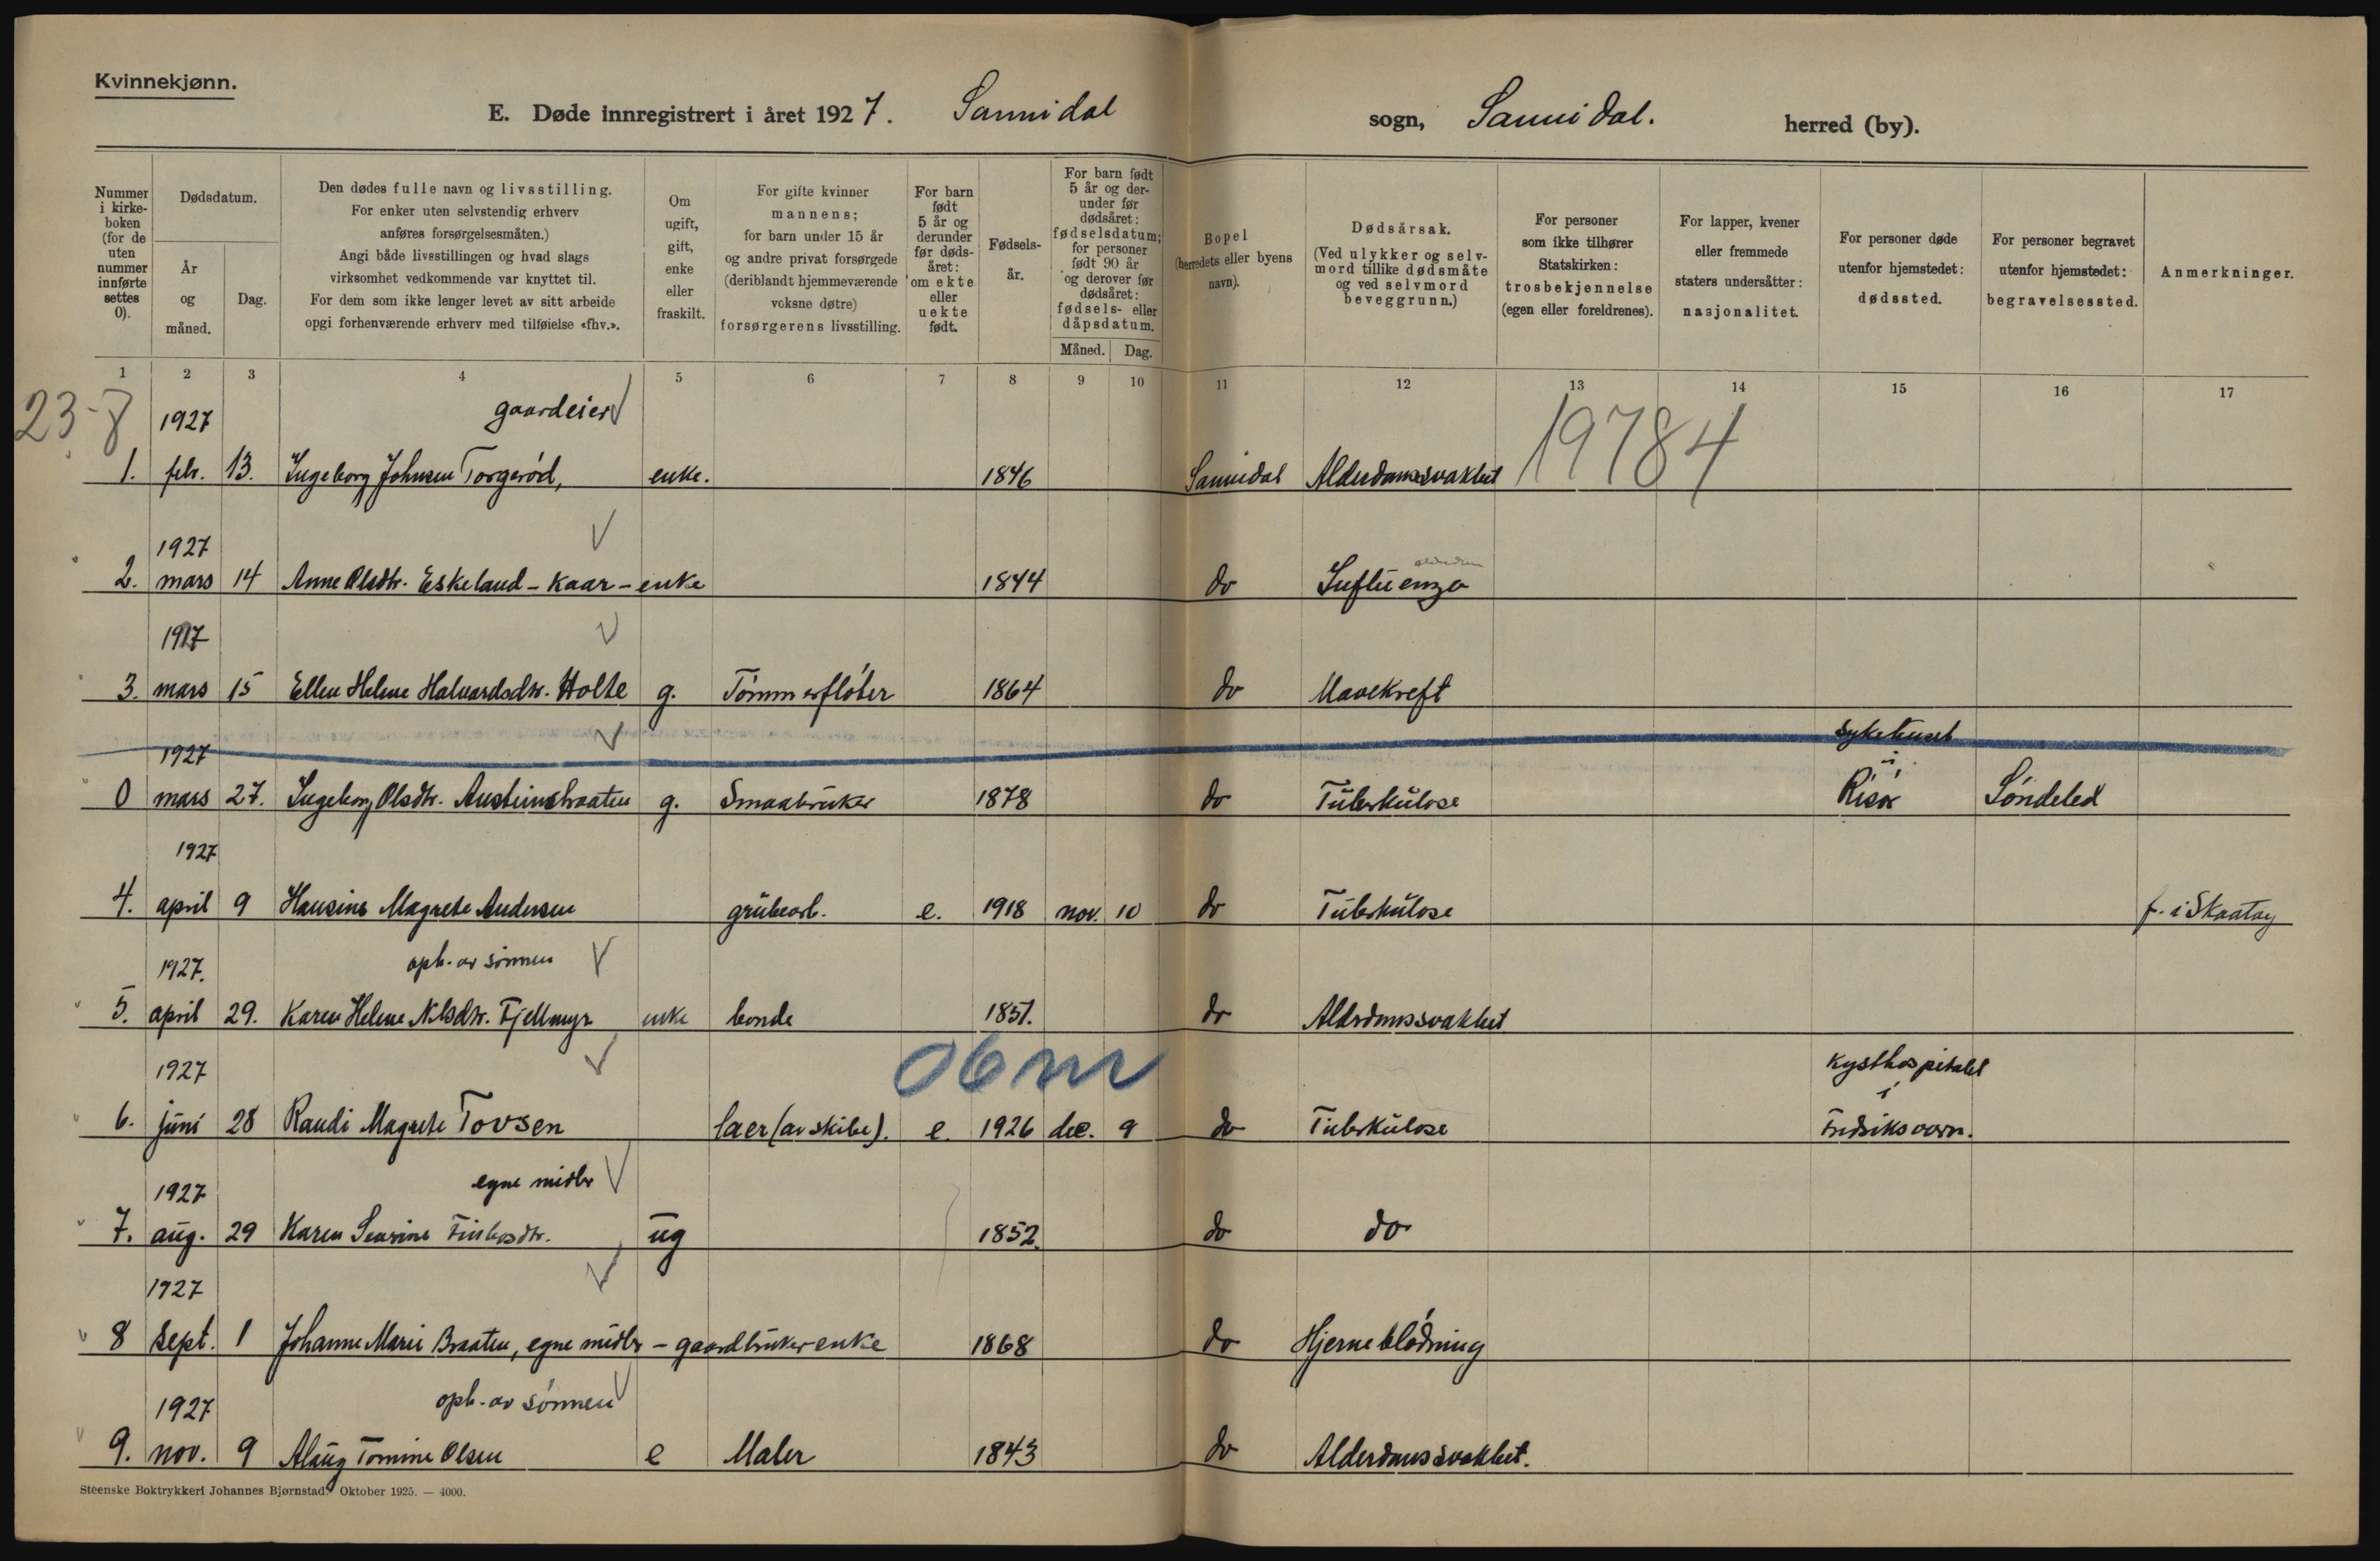 Kvinnekjønn.
E. Døde innregistrert i året 1927. Sannidal sogn, Sannidal. herred (by).
Nummer i kirkeboken (for de uten nummer innførte settes 0).
Dødsdatum.
År og måned.
Dag.
Den dødes fulle navn og livsstilling.
For enker uten selvstendig erhverv
anføres forsørgelsesmåten.)
Angi både livsstillingen og hvad slags
virksomhet vedkommende var knyttet til.
For dem som ikke lenger levet av sitt arbeide
opgi forhenværende erhverv med tilføielse «fhv.».
Om ugift, gift, enke eller fraskilt.
For gifte kvinner
mannens;
for barn under 15 år
og andre privat forsørgede
(deriblandt hjemmeværende
voksne døtre)
forsørgerens livsstilling.
For barn født 5 år og derunder før dødsåret: om ekte eller uekte født.
Fødselsår.
For barn født 5 år og derunder før dødsåret: fødselsdatum; for personer født 90 år og derover før dødsåret: fødsels- eller dåpsdatum.
Måned. Dag.
Bopel (herredets eller byens navn).
Dødsårsak.
(Ved ulykker og selvmord tillike dødsmåte og ved selvmord beveggrunn.)
For personer som ikke tilhører Statskirken: trosbekjennelse (egen eller foreldrenes).
For lapper, kvener eller fremmede staters undersåtter: nasjonalitet.
For personer døde utenfor hjemstedet: dødssted.
For personer begravet utenfor hjemstedet: begravelsessted.
Anmerkninger.
1 2 3 4 5 6 7 8 9 10 11 12 13 14 15 16 17
23-8 19784
1927 gaardeier
1. febr. 13. Ingeborg Johnsen Torgerød, enke. 1846 Sannidal Alderdomssvakhet
1927
2. mars 14 Anne Olsdtr. Eskeland - Kaar - enke 1844 do Influenza
1927
3. mars 15 Ellen Helene Halvardsdtr. Holte g. Tømmerfløter 1864 do Mavekreft
1927 sykehuset i
0 mars 27. Ingeborg Olsdtr. g. Smaabruker 1878 do Tuberkulose Risør Søndeled
1927
4. april 9 Hansine Magrete Andersen grubearb. e. 1918 nov. 10 do Tuberkulose f. i Skaatøy
1927. oph. av sønnen
5. april 29. Karen Helene Nilsdtr. Fjellmyr enke bonde 1851. do Alderdomssvakhet
1927 06 m kysthospitalet i
6. juni 28 Randi Magrete Tovsen laer (av skibe). e. 1926 dec. 9 do Tuberkulose Fredriksvern.
1927 egne midler
7. aug. 29 Karen ug 1852. do do
1927
8 Sept. 1 Johanne Marie Braaten, egne midler - gaardbruker enke 1868 do Hjerneblødning
1927 oph. av sønnen
9. nov. 9 Alaug Tomine Olsen e Maler 1843 do Alderdomssvakhet.
Steenske Boktrykkeri Johannes Bjørnstad. Oktober 1925. — 4000.